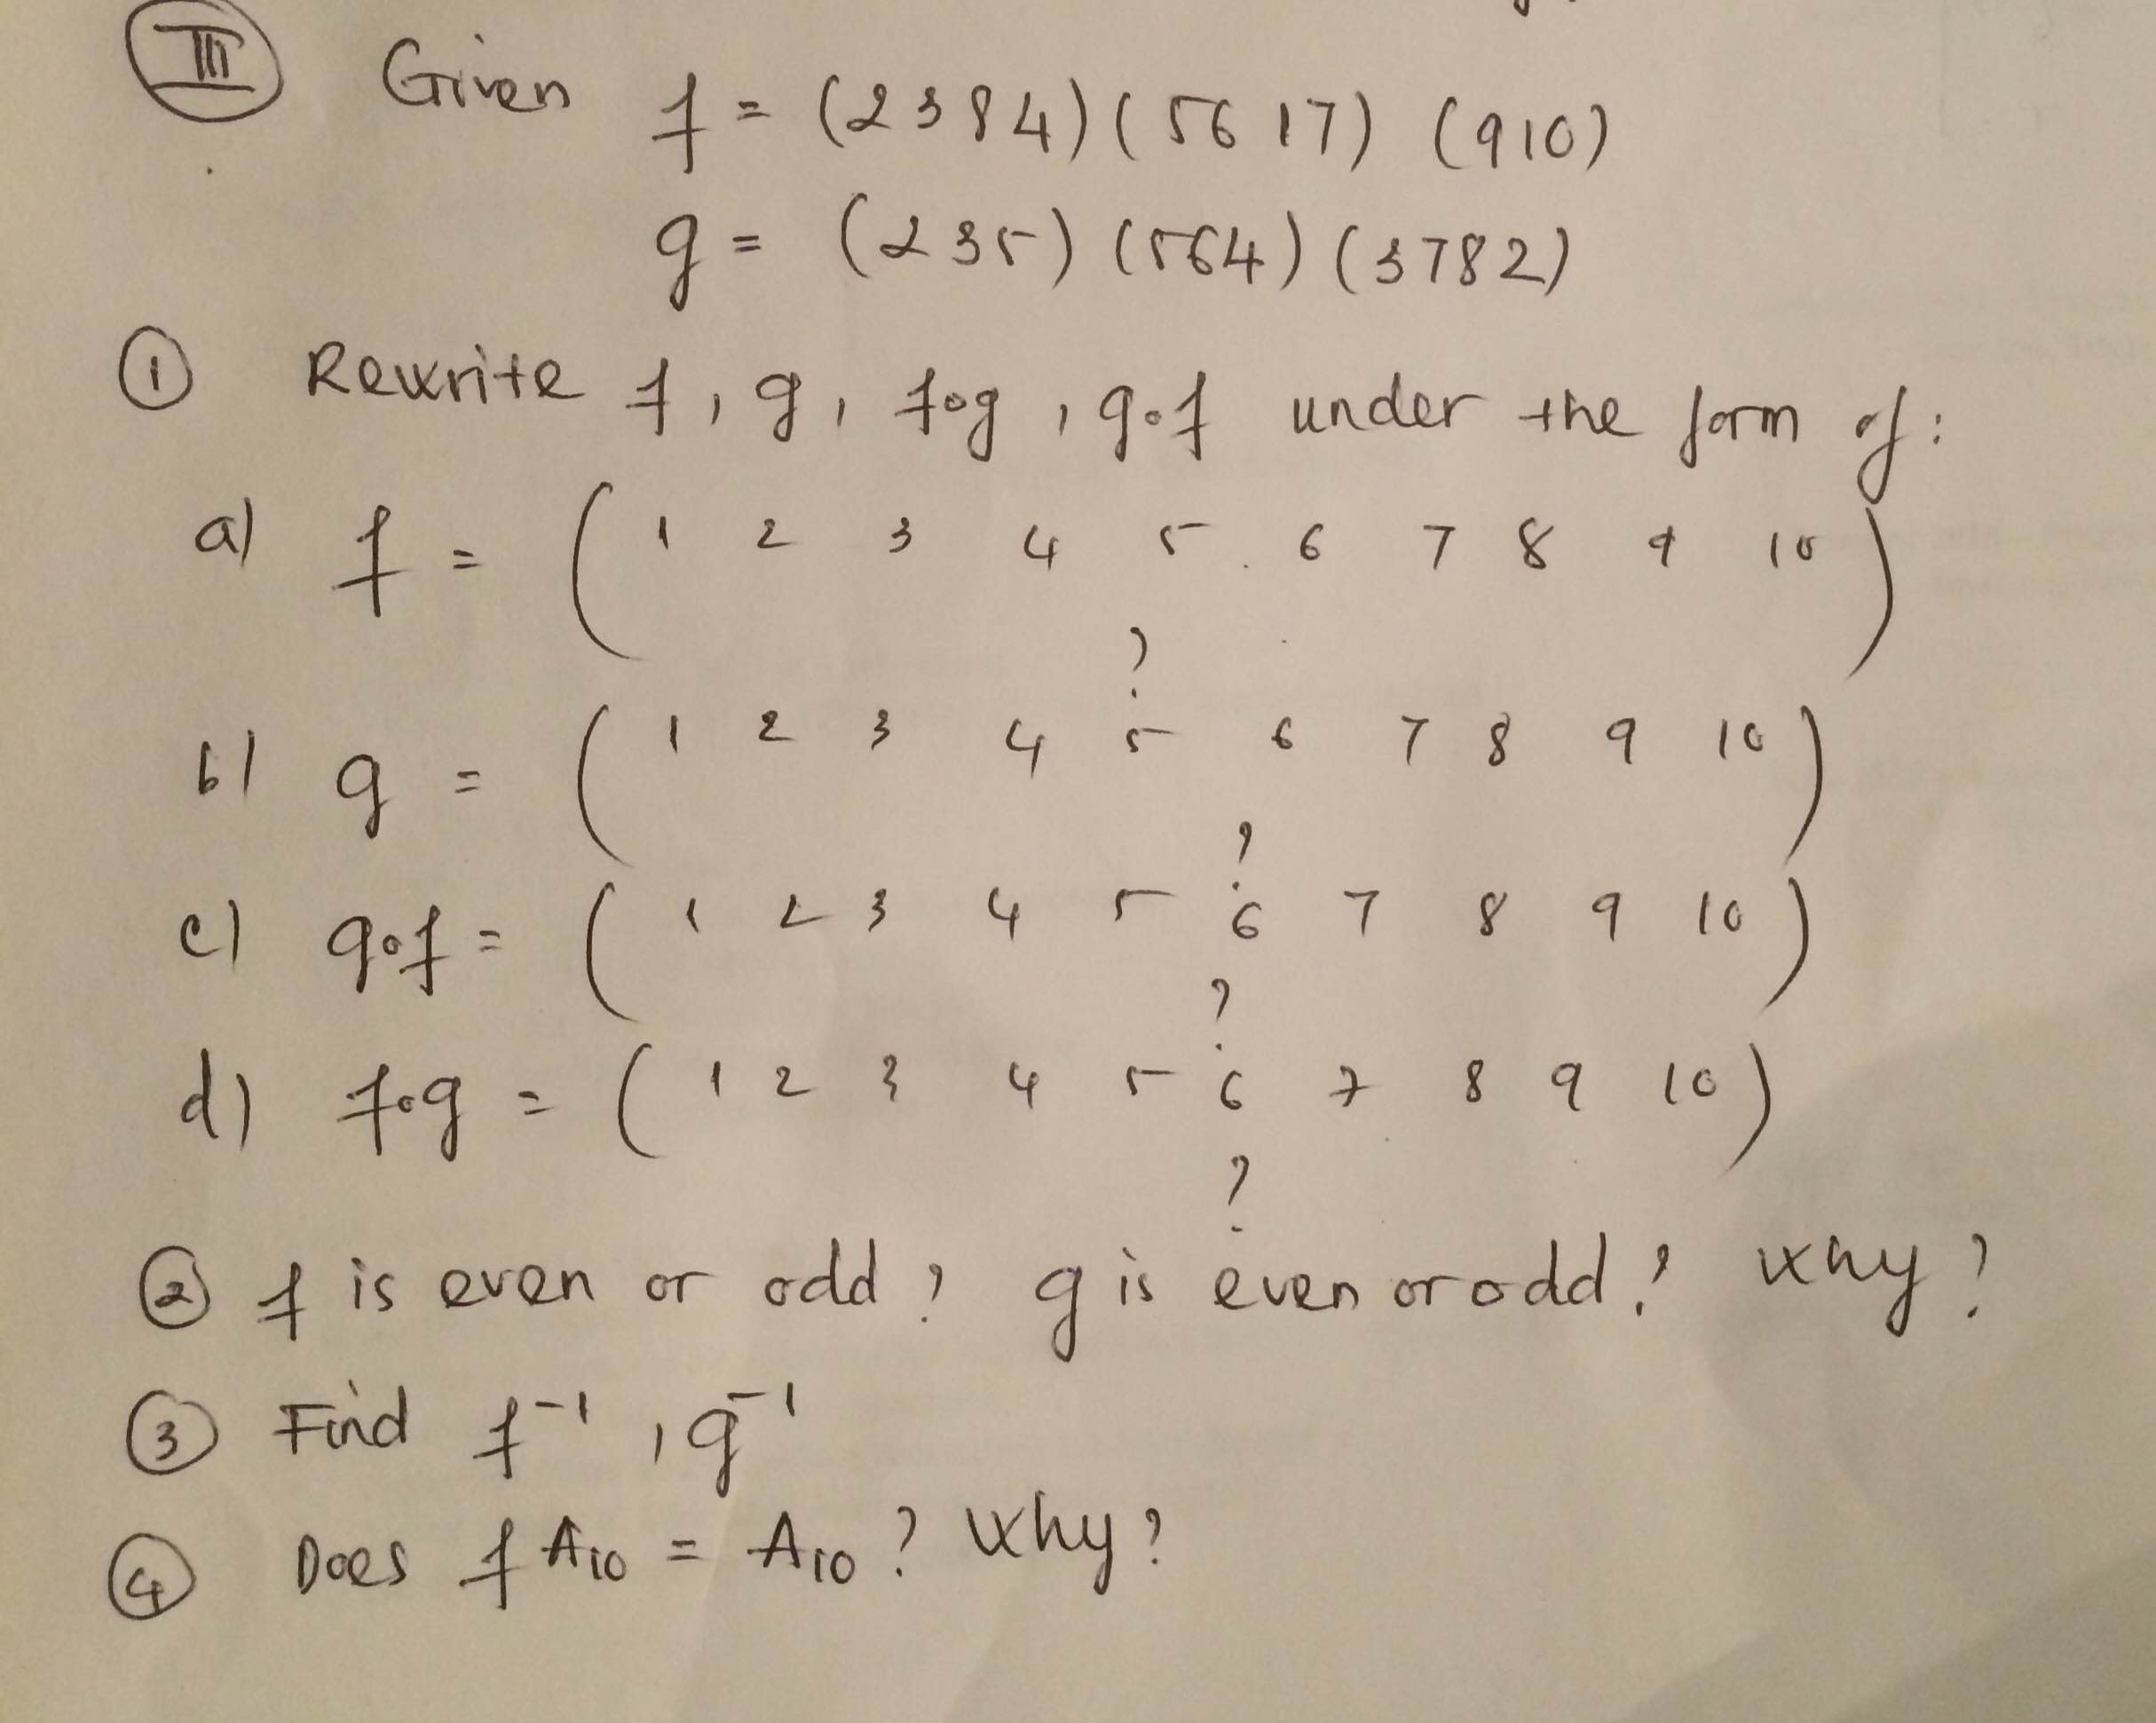 III Given f = (2384)(5617) (910)
g = (235)(564)(3782)
① Rewrite f, g, f∘g, g∘f under the form of:
a) f = ( 1 2 3 4 5 6 7 8 9 10 )
?
b) g = ( 1 2 3 4 5 6 7 8 9 10 )
?
c) g∘f = ( 1 2 3 4 5 6 7 8 9 10 )
?
d) f∘g = ( 1 2 3 4 5 6 7 8 9 10 )
?
② f is even or odd? g is even or odd? Why?
③ Find f⁻¹, g⁻¹
④ Does f A₁₀ = A₁₀? Why?